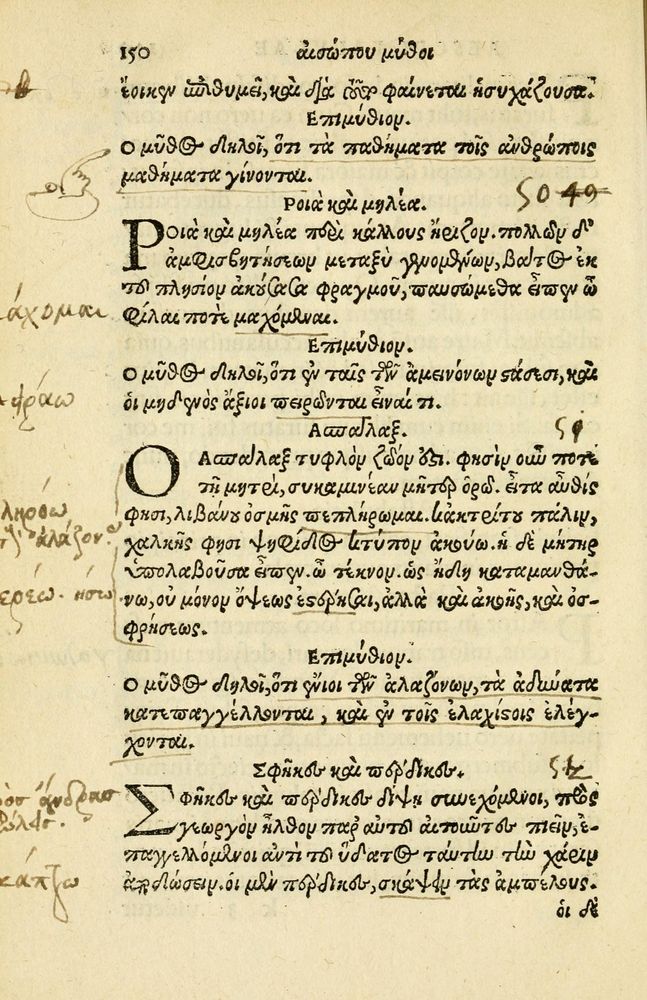 150 αισώπου μῦθοι
ἔοικεν ἐπιθυμεῖ, καὶ διὰ τοῦτο φαίνεται ἡσυχάζουσα.
Επιμύθιον.
Ο μῦθος δηλοῖ, ὅτι τὰ παθήματα τοῖς ἀνθρώποις
μαθήματα γίνονται.
50 49
Ροιὰ καὶ μηλέα.
Ροιὰ καὶ μηλέα περὶ κάλλους ἤριζον. πολλῶν δ'
ἀμφισβητήσεων μεταξὺ γενομένων, βάτος ἐκ
τοῦ πλησίον ἀκούσασα φραγμοῦ, παυσώμεθα εἶπεν ὦ
φίλαι ποτὲ μαχόμεναι.
άχομαι
Επιμύθιον.
Ο μῦθος δηλοῖ, ὅτι ἐν ταῖς τῶν ἀμεινόνων στάσεσι, καὶ
οἱ μηδενὸς ἄξιοι πειρῶνται εἶναί τι.
Ασπάλαξ.
51
Ο Ασπάλαξ τυφλὸν ζῶόν ἐστι. φησὶν οὖν ποτε
τῇ μητρὶ, συκαμινέαν μῆτερ ὁρῶ. εἶτα αὖθις
φησι, λιβάνου ὀσμῆς πεπλήρωμαι. κἀκ τρίτου πάλιν,
χαλκῆς φησι ψηφίδος κτύπον ἀκούω. ἡ δὲ μήτηρ
ὑπολαβοῦσα εἶπεν. ὦ τέκνον. ὡς ἤδη καταμανθά-
νω, οὐ μόνον ὄψεως ἐστέρησαι, ἀλλὰ καὶ ἀκοῆς, καὶ ὀσ-
φρήσεως.
Επιμύθιον.
Ο μῦθος δηλοῖ, ὅτι ἔνιοι τῶν ἀλαζόνων, τὰ ἀδύνατα
κατεπαγγέλλονται, καὶ ἐν τοῖς ἐλαχίστοις ἐλέγ-
χονται.
Σφῆκες καὶ πέρδικες.
52
Σφῆκες καὶ πέρδικες δίψῃ συνεχόμενοι, πρὸς
γεωργὸν ἦλθον παρ' αὐτοῦ αἰτοῦντες πιεῖν, ἐ-
παγγελλόμενοι ἀντὶ τοῦ ὕδατος ταύτην τὴν χάριν
ἀποδώσειν. οἱ μὲν πέρδικες, σκάψειν τὰς ἀμπέλους.
κάπτω
οἱ δὲ